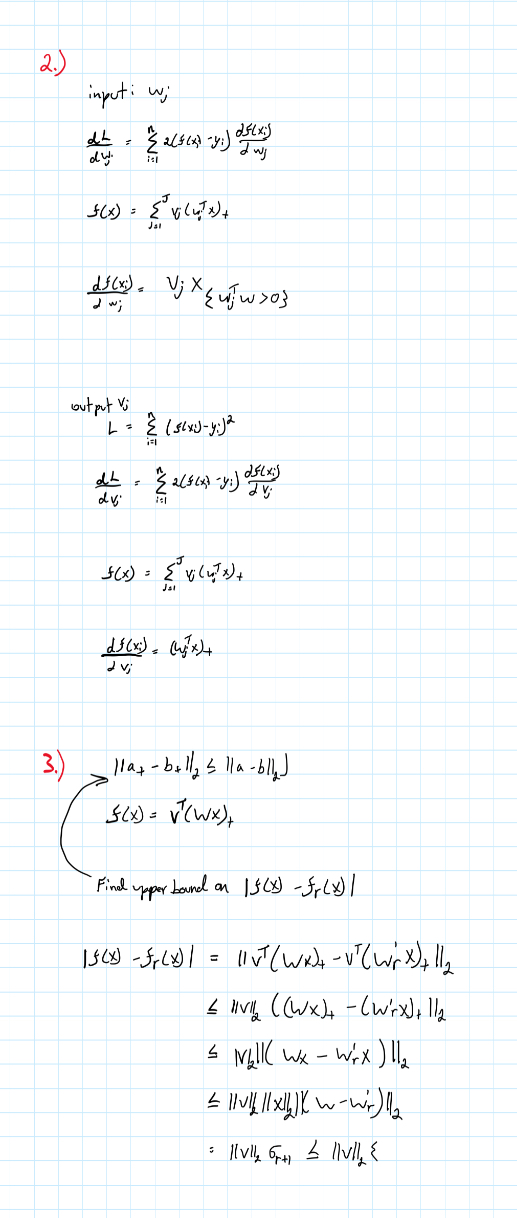 2.)
input: wj
dL/dwj = Σ_{i=1}^{n} 2(f(xi) - yi) df(xi)/dwj
f(x) = Σ_{j=1}^{J} vj (wj^T x)₊
df(xi)/dwj = Vj X_{wj^T w > 0}
output vj
L = Σ_{i=1}^{n} (f(xi) - yi)²
dL/dvj = Σ_{i=1}^{n} 2(f(xi) - yi) df(xi)/dvj
f(x) = Σ_{j=1}^{J} vj (wj^T x)₊
df(xi)/dvj = (wj^T x)₊
3.)
||a₊ - b₊||₂ ≤ ||a - b||₂]
f(x) = v^T(Wx)₊
Find upper bound on |f(x) - f_r(x)|
|f(x) - f_r(x)| = ||v^T(Wx)₊ - v^T(W'_r x)₊||₂
≤ ||v||₂ ((Wx)₊ - (W'_r x)₊||₂
≤ |v||₂||(Wx - W'_r x)||₂
≤ ||v||₂ ||x||₂||(W - W'_r)||₂
= ||v||₂ σ_{r+1} ≤ ||v||₂ ξ